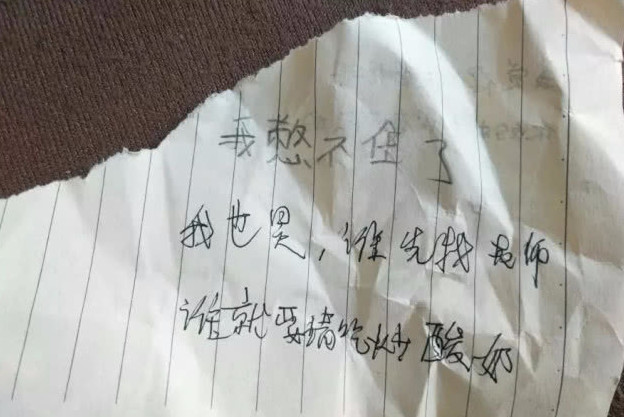 我憋不住了
我也是,谁先找老师
谁就要请吃炒酸奶